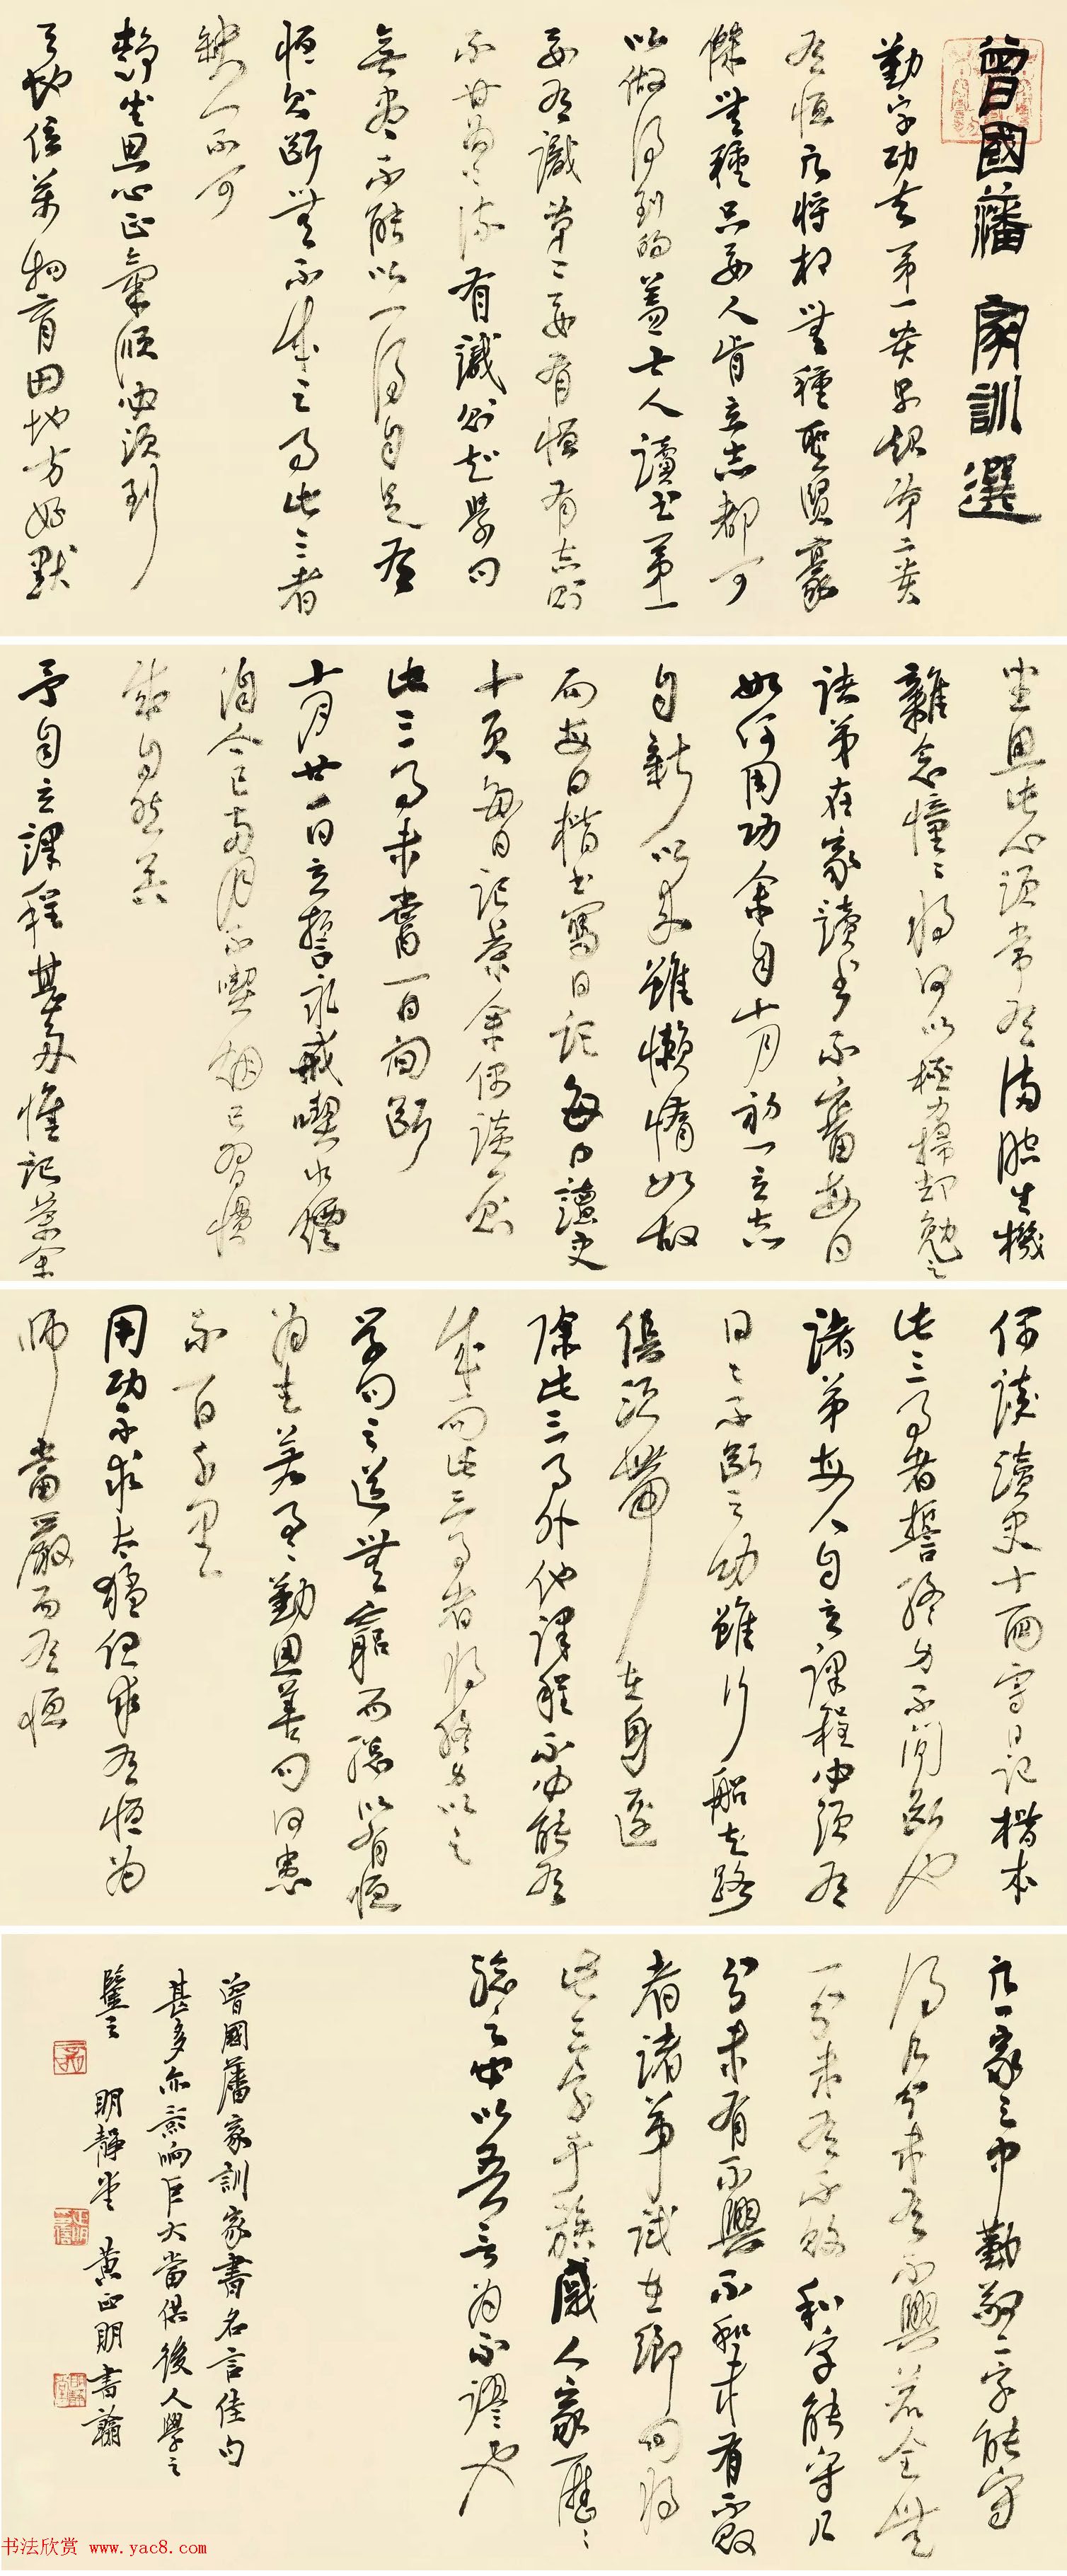 曾國藩 家訓選
勤字功夫第一貴早起第二貴
有恒凡將相無種聖賢豪
傑無種只要人肯立志都可
以做得到的蓋士人讀書第一
要有識第二要有恒有志則
不甘為下流有識則知學問
無盡不能以一得自足有
恒則斷無不成之事此三者
缺一不可
靜坐思心正氣順必須到
天地位萬物育田地方好默
坐思此心須常有滿腔生機
雜念憧憧將何以極力掃却勉之
諸弟在家讀書不審每日
如何用功余自十月初一立志
自新以來雖懶惰如故
而每日楷書寫日記每日讀史
十頁每日記茶余偶談一則
此三事未嘗一日間斷
十月廿一日立誓永戒喫水煙
洎今已兩月不喫烟已習慣
成自然矣
予自立課程甚多惟記茶余
偶談讀史十頁寫日記楷本
此三事者誓終身不間斷也
諸弟每人自立課程必須有
日日不斷之功雖行船走路
俱須帶在身邊
除此三事外他課程不必能有
成而此三事者將終身以之
學問之道無窮而總以有恒
為主若事事勤思善問何患
不一日千里
用功不求太猛但求有恒為
師當嚴而有恒
凡一家之中勤敬二字能守
得幾分未有不興若全無
一分未有不敗和字能守幾
分未有不興不和未有不敗
者諸弟試在鄉間將
此三字于族戚人家歷歷
驗之必以吾言為不謬也
曾國藩家訓家書名言佳句
甚多亦影响巨大當供後人學之
鑒之 明靜堂 黃正明書籥
书法欣赏 www.yac8.com